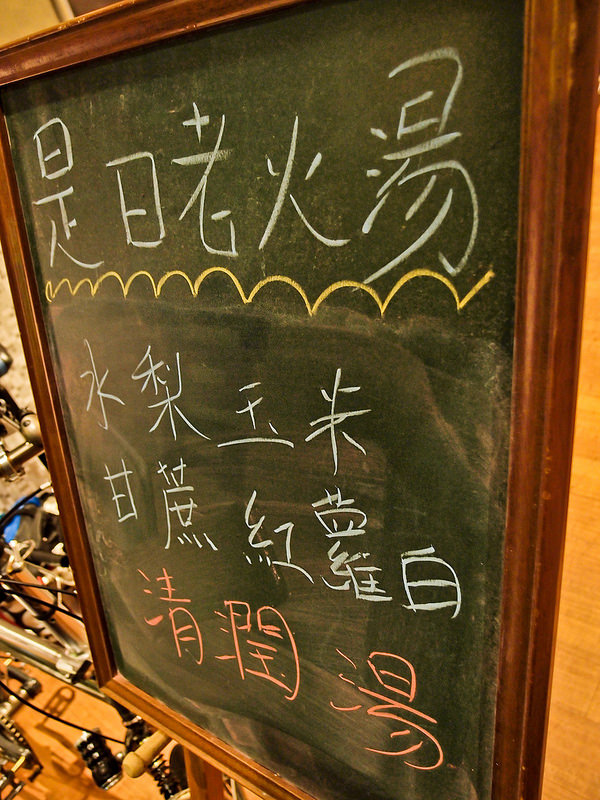 是日老火湯
水梨玉米
甘蔗紅蘿白
清潤湯